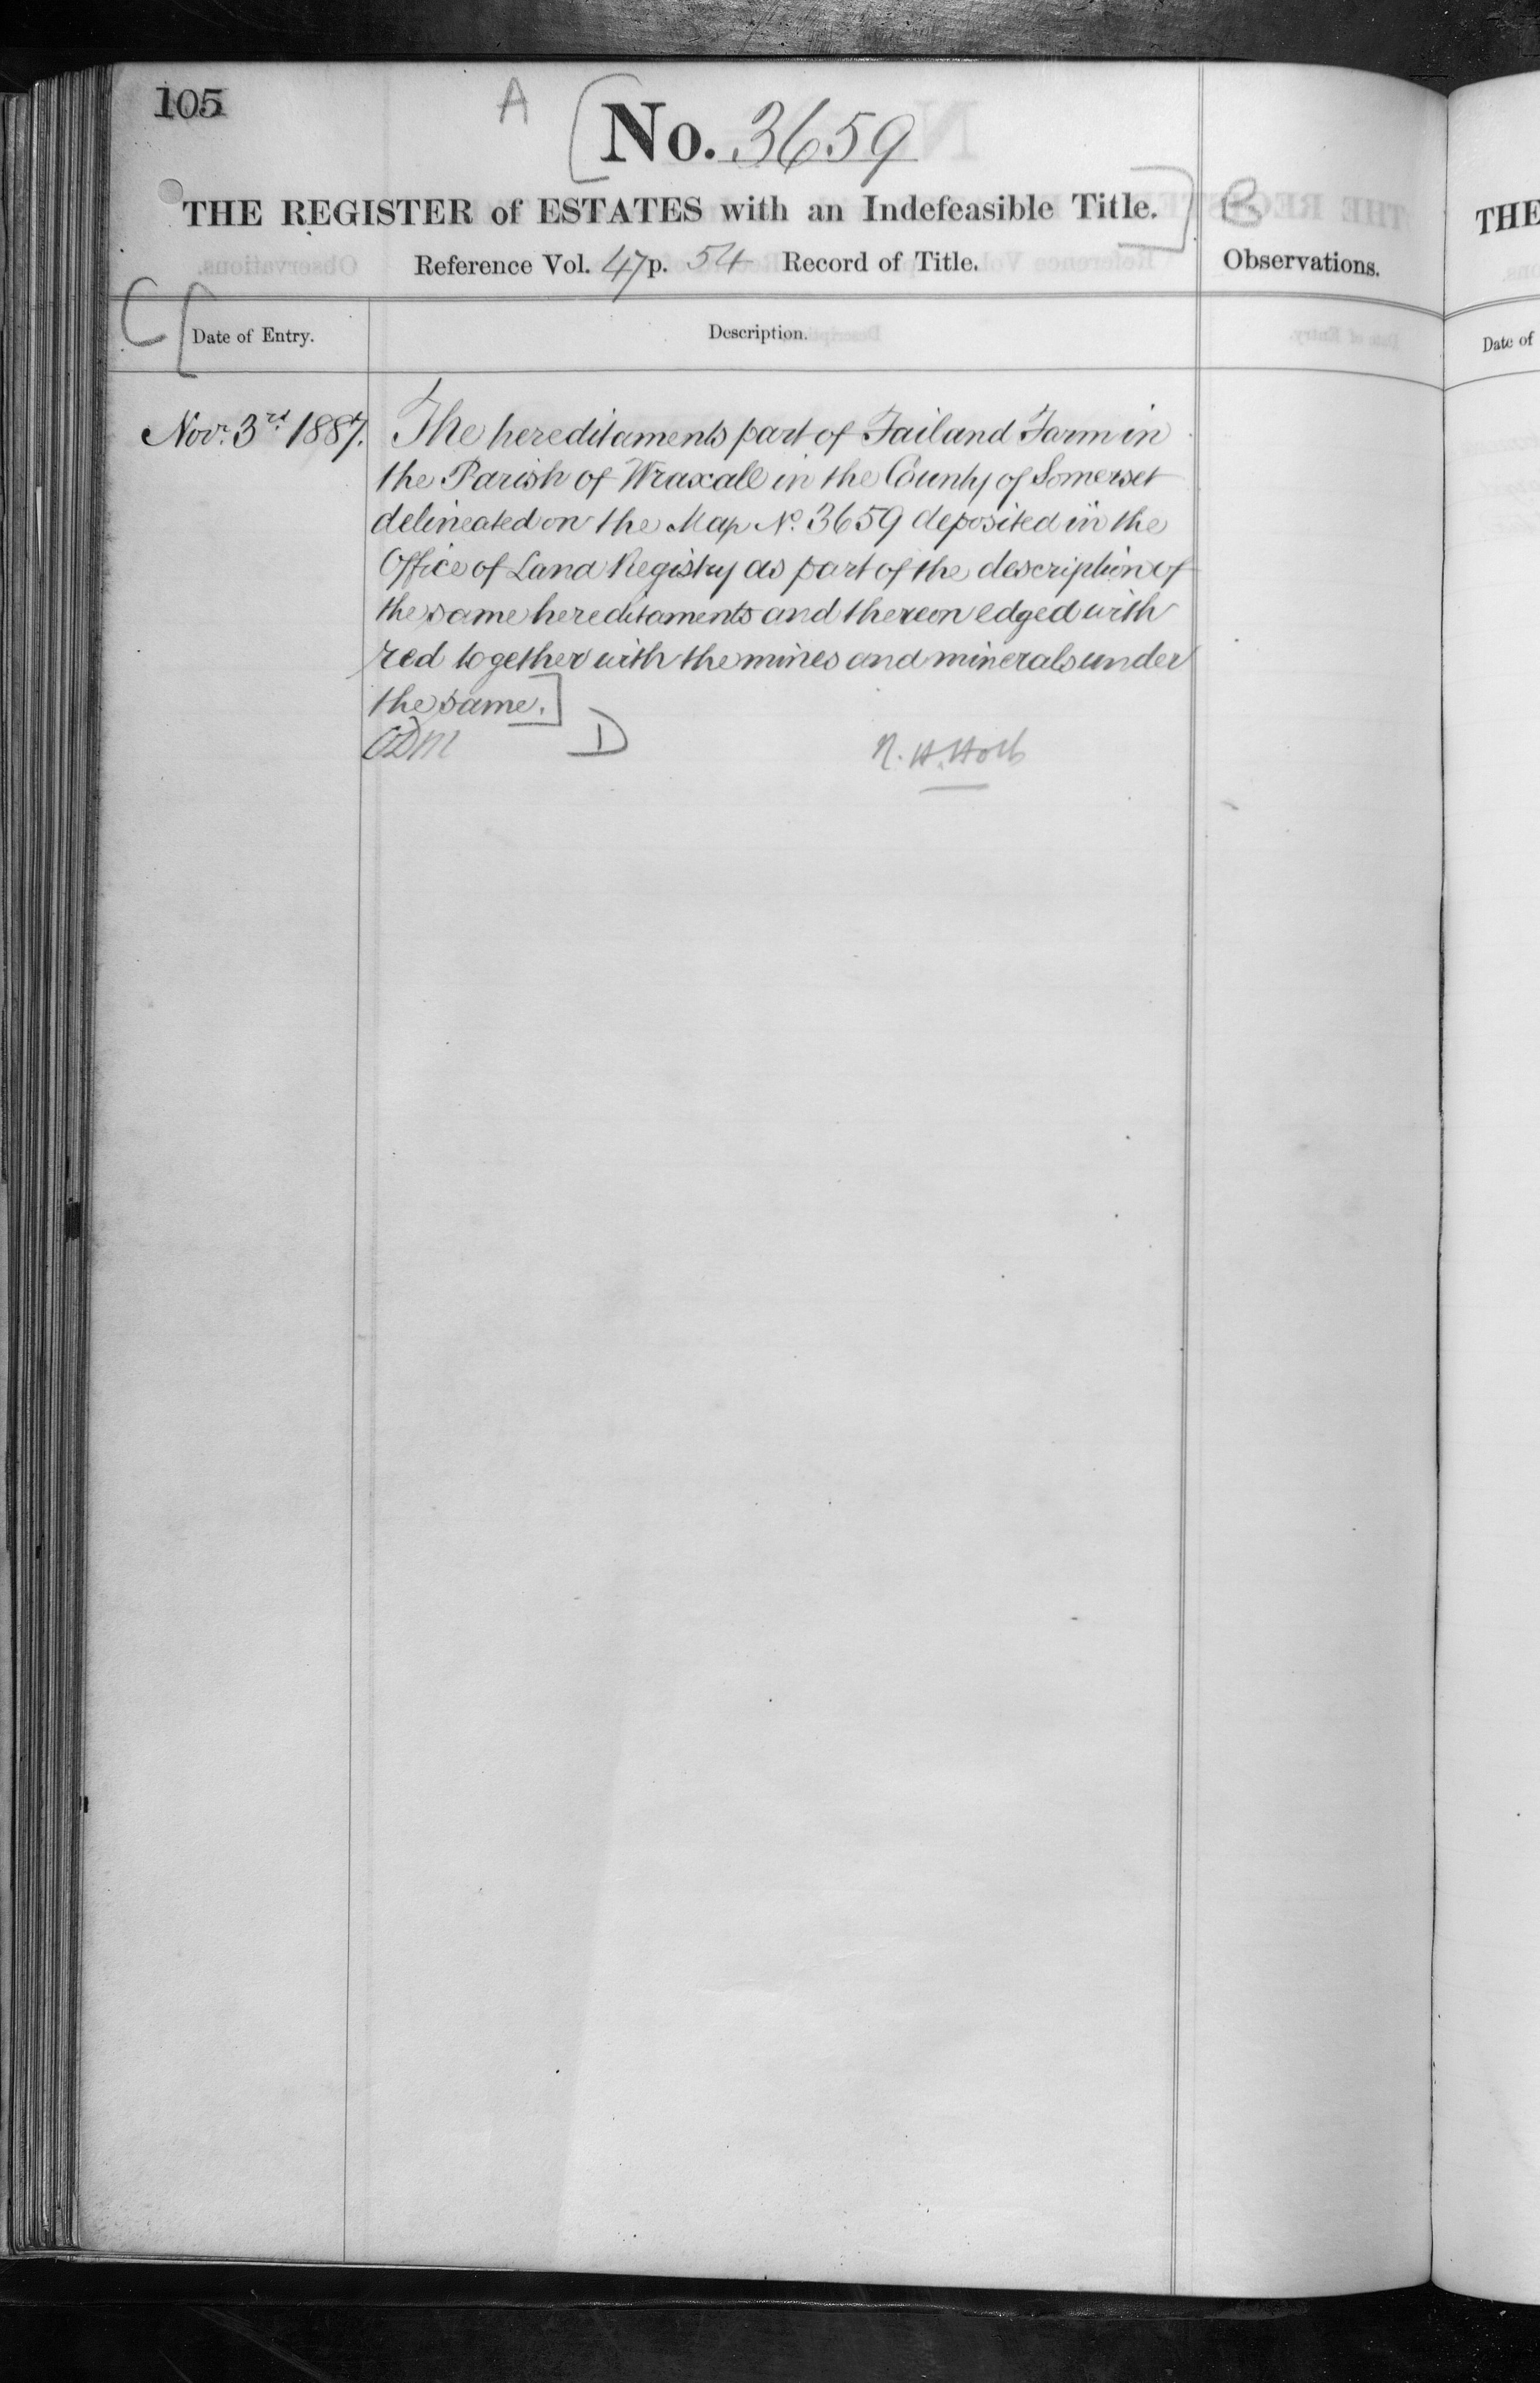 105
A [No. 3659
THE REGISTER of ESTATES with an Indefeasible Title.] B
Reference Vol. 47 p. 54 Record of Title.
Observations.
C [Date of Entry.
Description.
Novr. 3rd 1887.
The hereditaments part of Failand Farm in
the Parish of Wraxall in the County of Somerset
delineated on the Map No. 3659 deposited in the
Office of Land Registry as part of the description of
the same hereditaments and thereon edged with
red together with the mines and minerals under
the same.]
D
THE
Date of